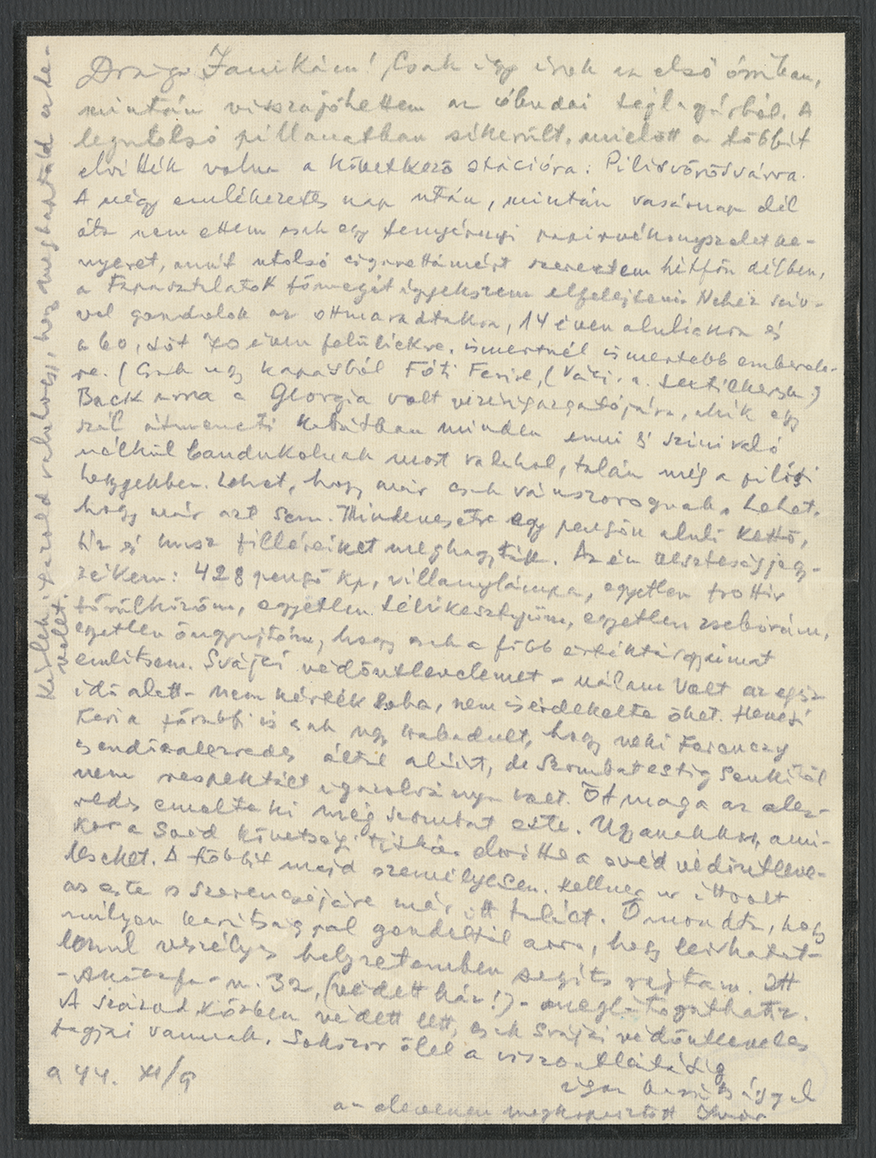 Drága Janikám! Csak így írok az első órában,
mintán visszajöhettem az óbudai téglagyárból. A
legutolsó pillanatban sikerült, mielőtt a többit
elvitték volna a következő stációra: Pilisvörösvárra.
A négy emlékezetes nap után, mintán vasárnap dél
óta nem ettem csak egy tenyérnyi papirvékony szelet ke-
nyeret, amit utolsó cigarettámért szereztem hétfőn délben,
a tapasztalatok tömegét igyekszem elfelejteni. Nehéz szív-
vel gondolok az ottmaradtakra, 14 éven aluliakra és
a 60, sőt 70 éven felüliekre, ismertnél ismertebb emberek-
re. (Csak úgy kapásból Fóti Ferire, (Váci. u. textilkeresk.)
Back arra a Georgia volt vezérigazgatójára, akik egy
szál átmeneti kabátban minden enni s szívni való
nélkül bandukolnak most valahol, talán még a pilisi
hegyekben. Lehet, hogy már csak vánszorognak. Lehet,
hogy már azt sem. Mindenesetre egy pengőn aluli kettő,
tíz és húsz filléreiket meghagyták. Az én veszteségjegy-
zékem: 428 pengő kp, villanylámpa, egyetlen frottir
törülközőm, egyetlen télikesztyűm, egyetlen zsebórám,
egyetlen öngyujtóm, hogy csak a főbb értéktárgyaimat
említsem. Svájci védőútlevelemet - nálam volt az egész
idő alatt - nem kérték soha, nem is érdekelte őket. Hevesi
Feri a további is csak úgy szabadult, hogy neki Ferenczy
csendőralezredes által aláírt, de szombat estig senkitől
nem respektált igazolványa volt. Őt maga az alez-
redes emelte ki még szombat este. Ugyanekkor, ami-
kor a Svéd követségi titkár elvitte a svéd védőútleve-
leseket. A többit majd személyesen. Kellner úr itt volt
az este s szerencséjére már itt talált. Ő mondta, hogy
milyen karitsággal gondoltál arra, hogy leírhatat-
lanul veszélyes helyzetemben segíts rajtam. Itt
- Akácfa-u. 32, (védett ház!) - meglátogathatsz.
A század közben védett lett, csak Svájci védőútleveles
tagjai vannak. Sokszor ölel a viszontlátásig
igaz barátsággal
az elevenen megkopasztott Imre
944. XI/9
Kérlek, tarold valahogy, hogy megkaptad e le-
velet.